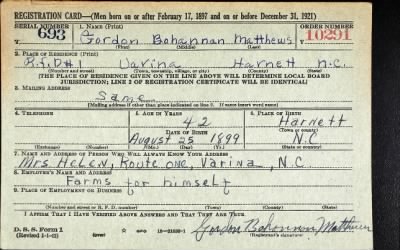 REGISTRATION CARD—(Men born on or after February 17, 1897 and on or before December 31, 1921)
SERIAL NUMBER 1. NAME (Print) ORDER NUMBER
693 Gordon Bohannan Matthews 10291
(First) (Middle) (Last)
2. PLACE OF RESIDENCE (Print)
R.F.D#1 Varina Harnett N.C.
(Number and street) (Town, township, village, or city) (County) (State)
[THE PLACE OF RESIDENCE GIVEN ON THE LINE ABOVE WILL DETERMINE LOCAL BOARD
JURISDICTION; LINE 2 OF REGISTRATION CERTIFICATE WILL BE IDENTICAL]
3. MAILING ADDRESS
Same
[Mailing address if other than place indicated on line 2. If same insert word same]
4. TELEPHONE 5. AGE IN YEARS 6. PLACE OF BIRTH
42 Harnett
DATE OF BIRTH (Town or county)
August 25 1899 N.C.
(Mo.) (Day) (Yr.) (State or country)
7. NAME AND ADDRESS OF PERSON WHO WILL ALWAYS KNOW YOUR ADDRESS
Mrs Helen, Route one, Varina, N.C.
8. EMPLOYER'S NAME AND ADDRESS
Farms for himself
9. PLACE OF EMPLOYMENT OR BUSINESS
(Number and street or R. F. D. number) (Town) (County) (State)
I AFFIRM THAT I HAVE VERIFIED ABOVE ANSWERS AND THAT THEY ARE TRUE.
D. S. S. Form 1 Gordon Bohannon Matthews
(Revised 1-1-42) (over) (Registrant's signature)